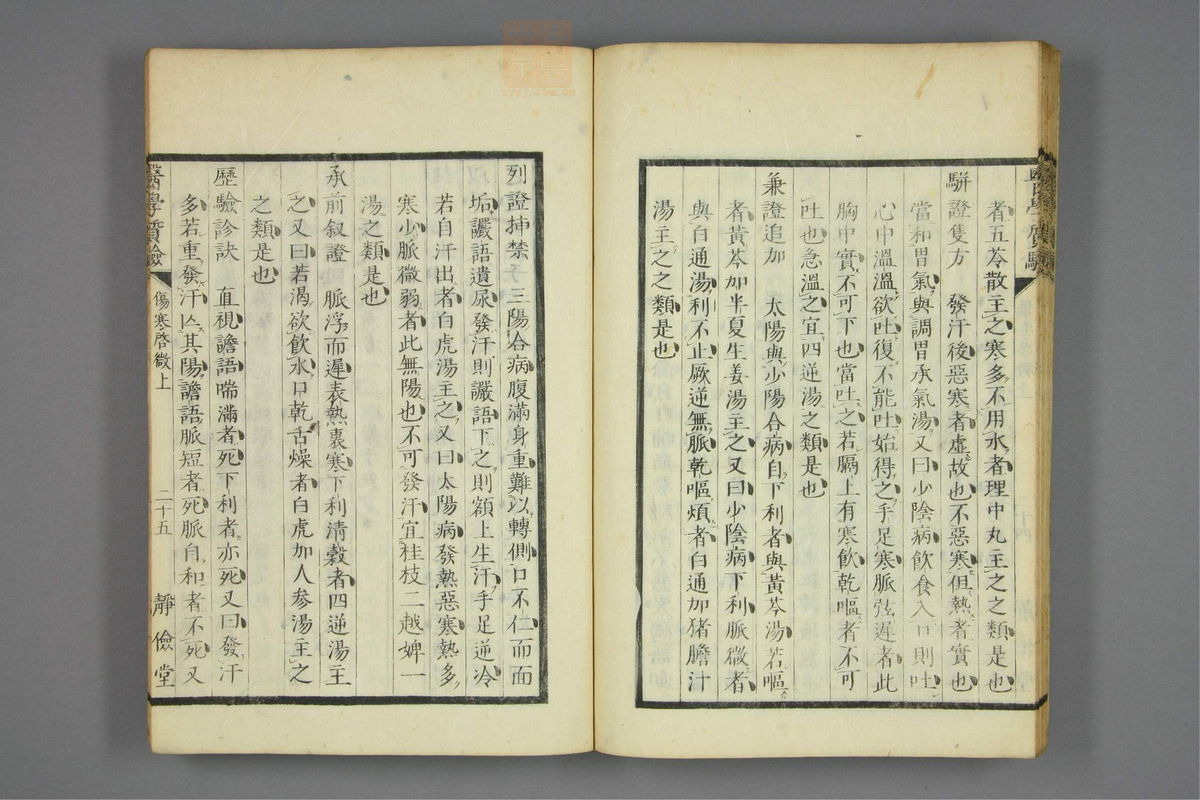 者五苓散主之寒多不用水者理中丸主之之類是也
駢證隻方　發汗後惡寒者虛故也不惡寒但熱者實也
當和胃氣與調胃承氣湯又曰少陰病飲食入口則吐
心中溫溫欲吐復不能吐始得之手足寒脈弦遲者此
胸中實不可下也當吐之若膈上有寒飲乾嘔者不可
吐也急溫之宜四逆湯之類是也
兼證追加　太陽與少陽合病自下利者與黃芩湯若嘔
者黃芩加半夏生姜湯主之又曰少陰病下利脈微者
與白通湯利不止厥逆無脈乾嘔煩者白通加猪膽汁
湯主之之類是也
列證挿禁　三陽合病腹滿身重難以轉側口不仁而面
垢讝語遺尿發汗則讝語下之則額上生汗手足逆冷
若自汗出者白虎湯主之又曰太陽病發熱惡寒熱多
寒少脈微弱者此無陽也不可發汗宜桂枝二越婢一
湯之類是也
承前叙證　脈浮而遲表熱裏寒下利清穀者四逆湯主
之又曰若渴欲飲水口乾舌燥者白虎加人参湯主之
之類是也
歷驗診訣　直視譫語喘滿者死下利者亦死又曰發汗
多若重發汗亾其陽譫語脈短者死脈自和者不死又
醫學質驗　傷寒啓微上　二十五　靜儉堂